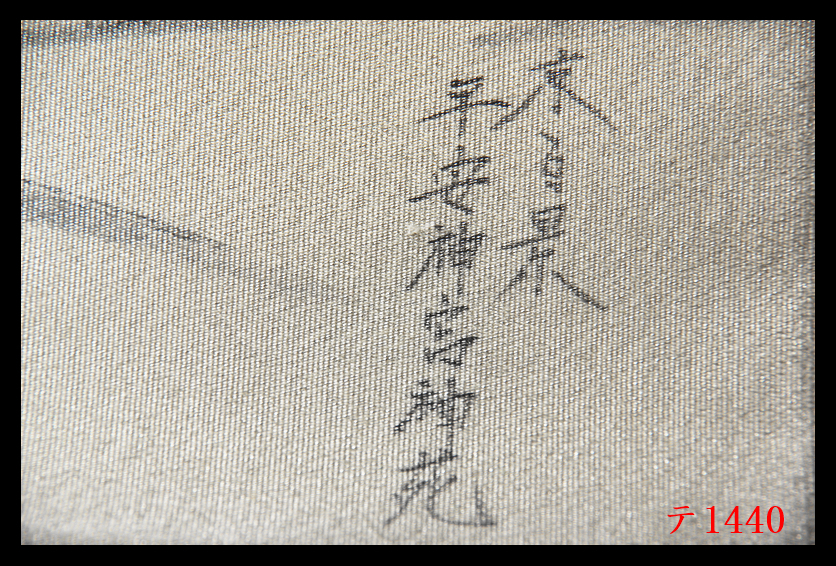 京百景
平安神宮神苑
テ1440